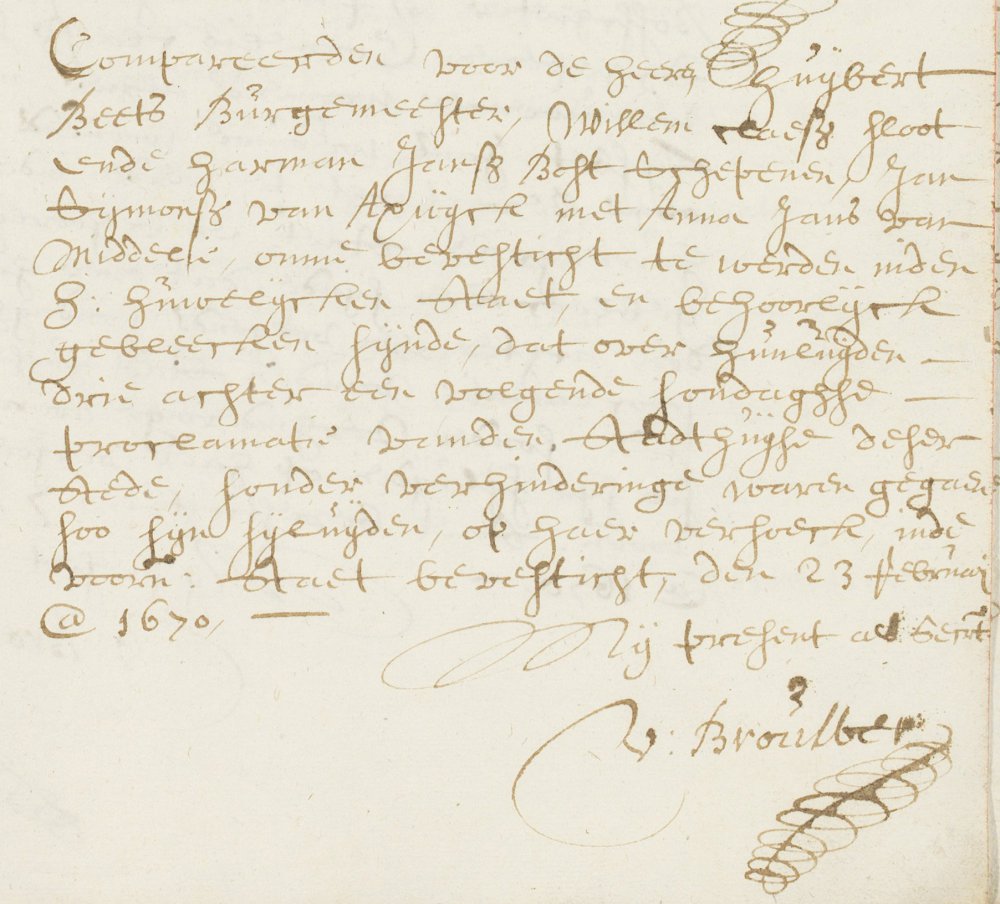 Compareerden voor de heeren Huÿbert
Beets Burgemeester, Willem Claesz Sloot
ende Harman Jansz Bost Schepenen, Jan
Sijmonsz van met Anna Jans van
Middelie, omme bevesticht te werden inden
H: Huwelijcken Staet, en behoorlijck
gebleecken sijnde, dat over hunluijden —
drie achter een volgende sondaghse —
proclamatie vanden Stadthuijse deser
Stede, sonder verhinderinge waren gegaen
soo sijn sijluijden, op haer versoeck, inde
voorn: Staet bevesticht, den 23 februarij
@ 1670, —
Mij present als Secrt
V: Brouwer